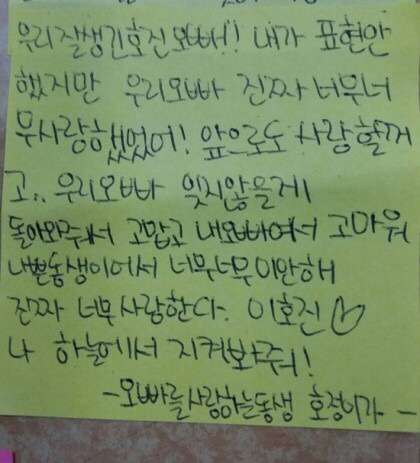 우리잘생긴호진오빠!! 내가 표현안
했지만 우리오빠 진짜 너무너
무사랑했었어! 앞으로도 사랑할꺼
고.. 우리오빠 잊지않을게
돌아와줘서 고맙고 내오빠여서 고마워
나쁜동생이어서 너무너무미안해
진짜 너무사랑한다. 이호진♡
나 하늘에서 지켜봐줘!
-오빠를사랑하는동생 호정이가-